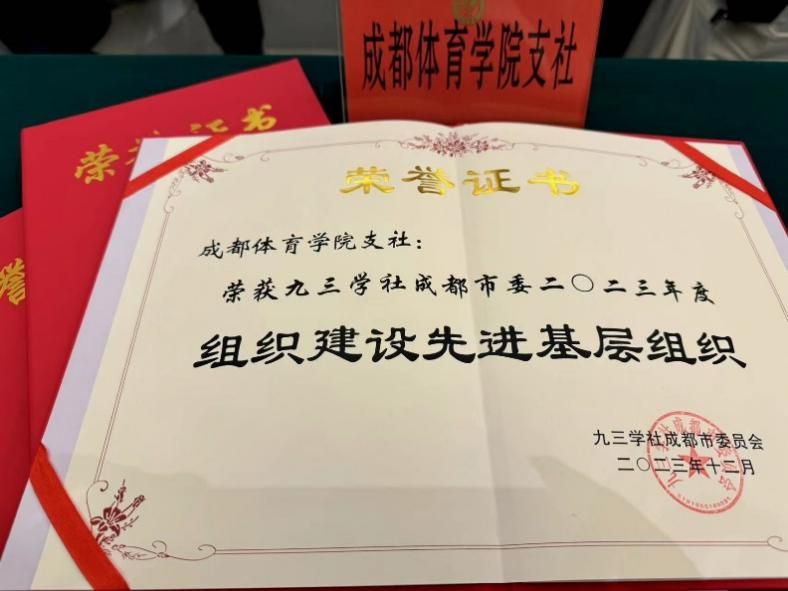 成都体育学院支社
荣誉证书
誉
荣誉证书
成都体育学院支社：
荣获九三学社成都市委二〇二三年度
组织建设先进基层组织
九三学社成都市委员会
二〇二三年十二月